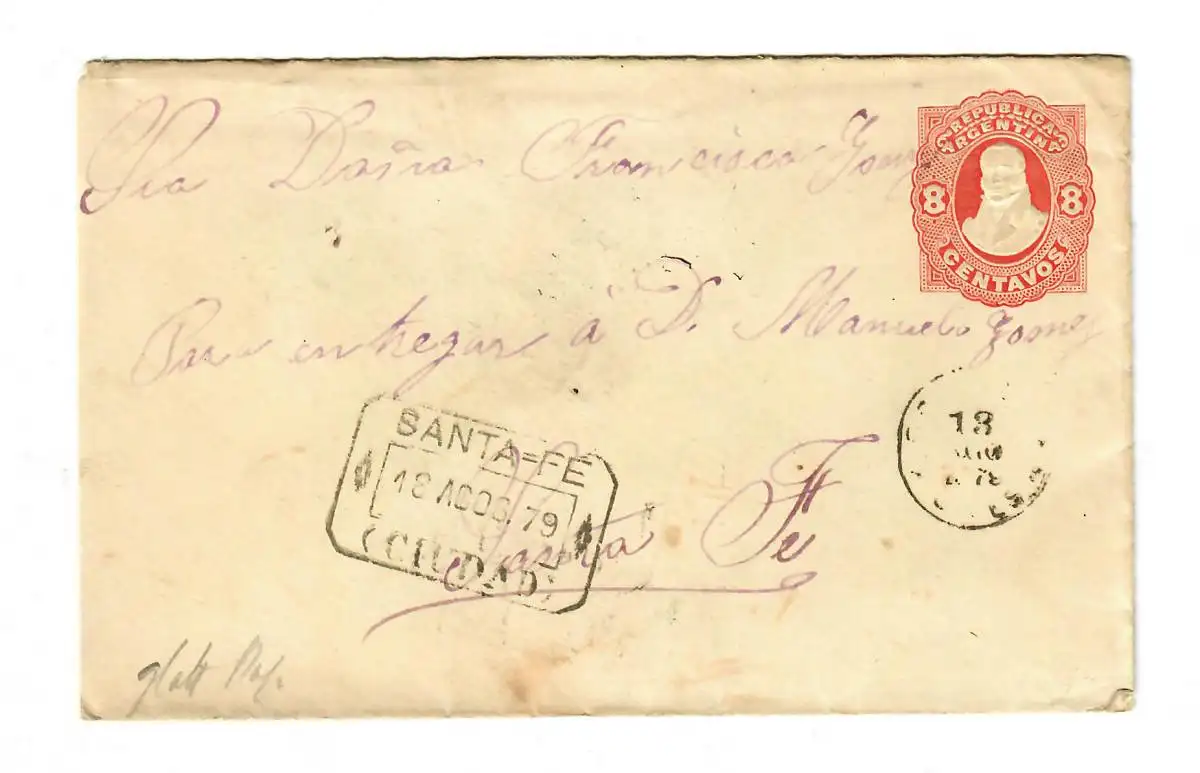 Sra Doña Francisca Gomez
REPUBLICA
ARGENTINA
8 8
CENTAVOS
Para entregar á D. Manuel Gomez
SANTA=FÉ
18 AGOS. 79
(CIUDAD)
Santa Fe
18
glatt